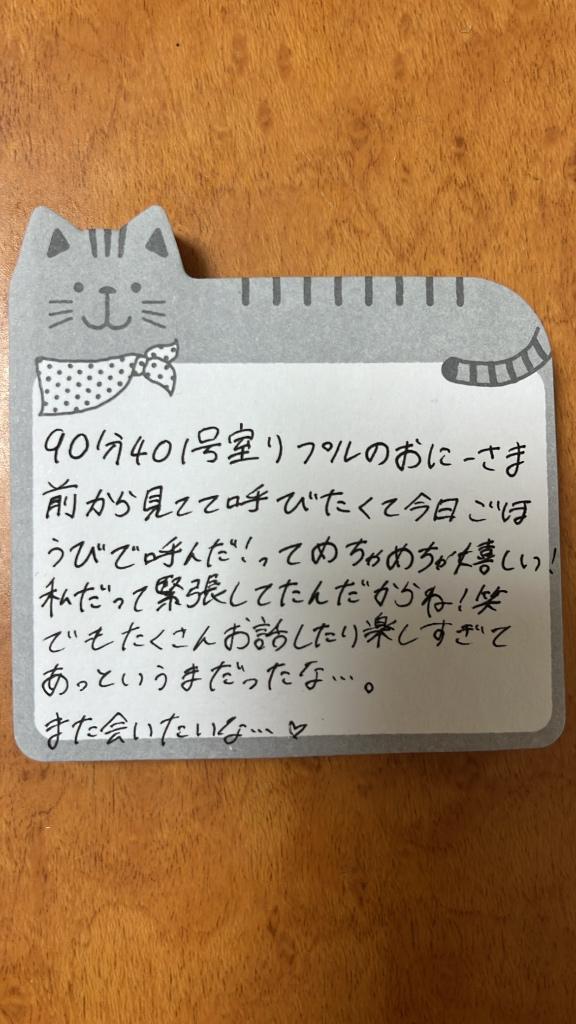 90分401号室リプルのおにーさま
前から見てて呼びたくて今日ごほ
うびで呼んだ!ってめちゃめちゃ嬉しいっ!
私だって緊張してたんだからね!笑
でもたくさんお話したり楽しすぎて
あっというまだったな…。
また会いたいな…♡